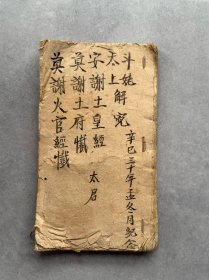 斗姥解冤
太上
安謝土皇經
奠謝土府懺
太君
奠謝火官經懺
辛巳三十年孟冬月紀念